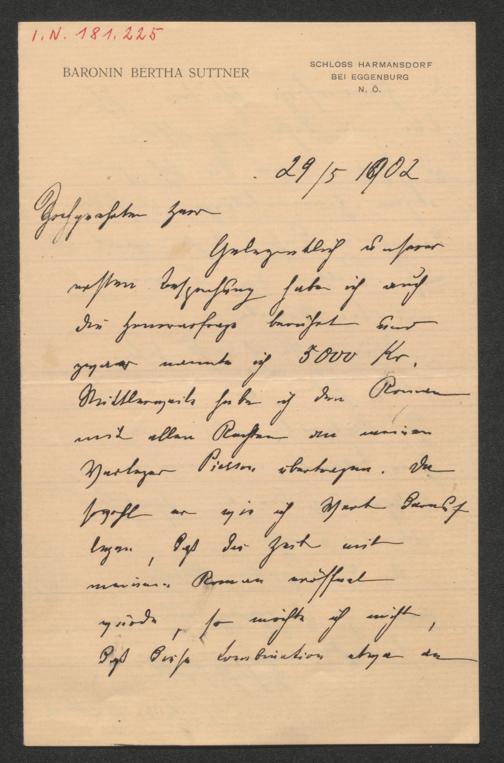 I.N. 181.225
BARONIN BERTHA SUTTNER
SCHLOSS HARMANSDORF
BEI EGGENBURG
N. Ö.
29/5 1902
Hochgeehrter Herr
Gelegentlich unserer
ersten Besprechung habe ich auch
die Honorarfrage berührt und
zwar nannte ich 5000 Kr.
Mittlerweile habe ich den Roman
mit allen Rechten an meinen
Verleger Pierson übertragen. Da
sowohl er wie ich Wert darauf
legen, daß die Zeit mit
meinem Roman eröffnet
würde, so möchte ich nicht,
daß diese Combination etwa an